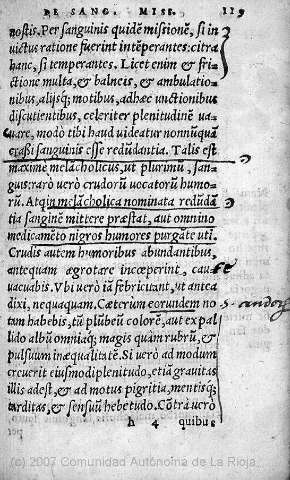 DE SANG. MISS. 119
nostis. Per sanguinis quidē missionē, si in
uictus ratione fuerint intēperantes: citra
hanc, si temperantes. Licet enim & fri-
ctione multa, & balneis, & ambulatio-
nibus, alijsq; motibus, adhæc unctionibus
discutientibus, celeriter plenitudinē ua-
cuare, modò tibi haud uideatur nonnūquā
crassi sanguinis esse redūdantia. Talis est
maxime melācholicus, ut plurimū, san-
guis: rarò verò crudorū uocatorū humo-
rū. Atq; in melācholica nominata redūdā
tia sanguinē mittere præstat, aut omnino
medicamēto nigros humores purgāte uti.
Crudis autem humoribus abundantibus,
antequam ægrotare incœperint, caute
uacuabis. Vbi uerò iā febricitant, ut antea
dixi, nequaquam. Cæterùm eorundem no
tam habebis, tū plūbeū colorē, aut ex pal
lido albū omniaq; magis quàm rubrū, &
pulsuum inæqualitatē. Si uerò ad modum
creuerit eiusmodi plenitudo, etiā grauitas
illis adest, & ad motus pigritia, mentisq;
tarditas, & sensuū hebetudo. Cōtra uerò
h 4 quibus
(c) 2007 Comunidad Autónoma de La Rioja